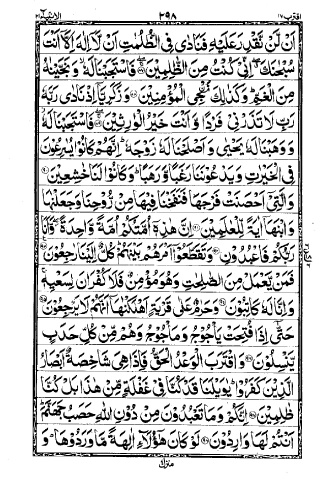 اقترب ١٧ ٢٩٨ الانبیآء ٢١
اَنْ لَّنْ نَّقْدِرَ عَلَیْهِ فَنَادٰی فِی الظُّلُمٰتِ اَنْ لَّاۤ اِلٰهَ اِلَّاۤ اَنْتَ
سُبْحٰنَكَ اِنِّیْ كُنْتُ مِنَ الظّٰلِمِیْنَ فَاسْتَجَبْنَا لَهٗ وَنَجَّیْنٰهُ
مِنَ الْغَمِّ وَكَذٰلِكَ نُـْۨجِی الْمُؤْمِنِیْنَ وَزَكَرِیَّاۤ اِذْ نَادٰی رَبَّهٗ
رَبِّ لَا تَذَرْنِیْ فَرْدًا وَّاَنْتَ خَیْرُ الْوٰرِثِیْنَ فَاسْتَجَبْنَا لَهٗ
وَوَهَبْنَا لَهٗ یَحْیٰی وَاَصْلَحْنَا لَهٗ زَوْجَهٗ اِنَّهُمْ كَانُوْا یُسٰرِعُوْنَ
فِی الْخَیْرٰتِ وَیَدْعُوْنَنَا رَغَبًا وَّرَهَبًا وَكَانُوْا لَنَا خٰشِعِیْنَ
وَالَّتِیْۤ اَحْصَنَتْ فَرْجَهَا فَنَفَخْنَا فِیْهَا مِنْ رُّوْحِنَا وَجَعَلْنٰهَا
وَابْنَهَاۤ اٰیَةً لِّلْعٰلَمِیْنَ اِنَّ هٰذِهٖۤ اُمَّتُكُمْ اُمَّةً وَّاحِدَةً وَّاَنَا
رَبُّكُمْ فَاعْبُدُوْنِ وَتَقَطَّعُوْۤا اَمْرَهُمْ بَیْنَهُمْ كُلٌّ اِلَیْنَا رٰجِعُوْنَ
فَمَنْ یَّعْمَلْ مِنَ الصّٰلِحٰتِ وَهُوَ مُؤْمِنٌ فَلَا كُفْرَانَ لِسَعْیِهٖ
وَاِنَّا لَهٗ كٰتِبُوْنَ وَحَرٰمٌ عَلٰی قَرْیَةٍ اَهْلَكْنٰهَاۤ اَنَّهُمْ لَا یَرْجِعُوْنَ
حَتّٰۤی اِذَا فُتِحَتْ یَاْجُوْجُ وَمَاْجُوْجُ وَهُمْ مِّنْ كُلِّ حَدَبٍ
یَّنْسِلُوْنَ وَاقْتَرَبَ الْوَعْدُ الْحَقُّ فَاِذَا هِیَ شَاخِصَةٌ اَبْصَارُ
الَّذِیْنَ كَفَرُوْا یٰوَیْلَنَا قَدْ كُنَّا فِیْ غَفْلَةٍ مِّنْ هٰذَا بَلْ كُنَّا
ظٰلِمِیْنَ اِنَّكُمْ وَمَا تَعْبُدُوْنَ مِنْ دُوْنِ اللّٰهِ حَصَبُ جَهَنَّمَ
اَنْتُمْ لَهَا وٰرِدُوْنَ لَوْ كَانَ هٰۤؤُلَآءِ اٰلِهَةً مَّا وَرَدُوْهَا وَ
منزل